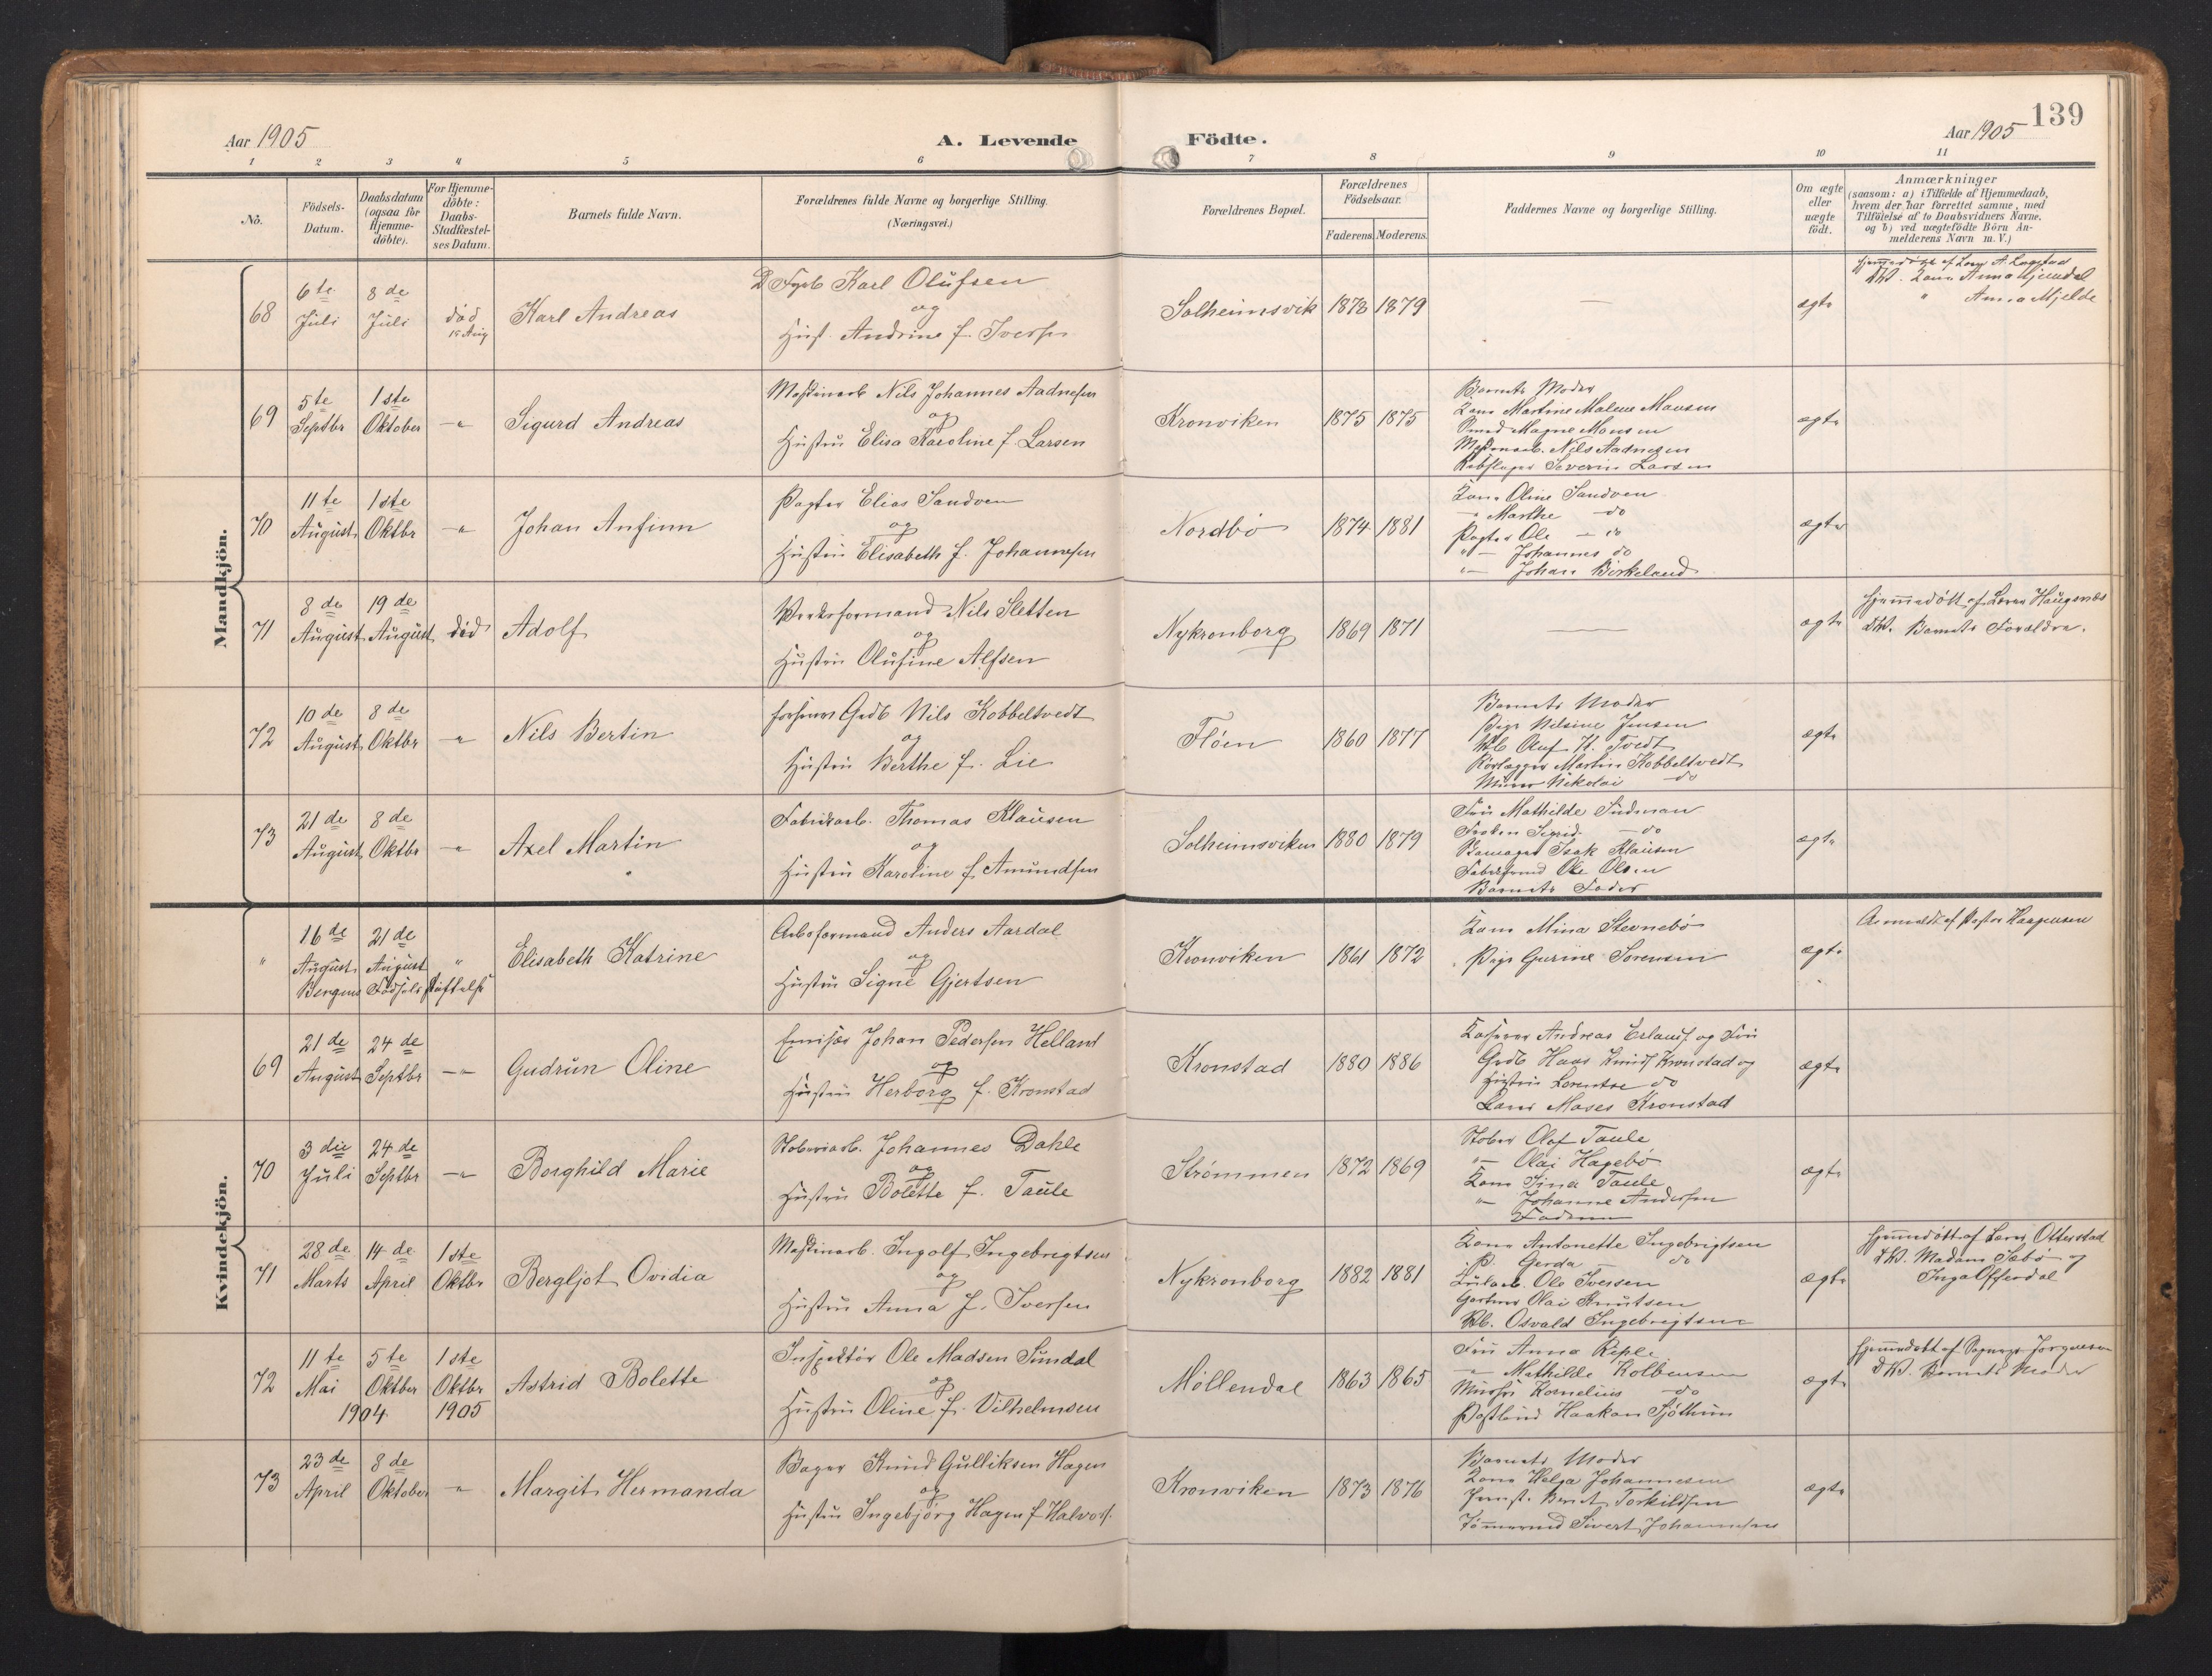 139
Aar 1905
A. Levende Födte.
Aar 1905
1 2 3 4 5 6 7 8 9 10 11
No.
Födsels-
Datum.
Daabsdatum
(ogsaa för
Hjemme-
döbte).
For Hjemme-
döbte:
Daabs-
Stadfæstel-
ses Datum.
Barnets fulde Navn.
Forældrenes fulde Navne og borgerlige Stilling.
(Næringsvei.)
Forældrenes Bopæl.
Forældrenes
Födselsaar.
Faderens. Moderens.
Faddernes Navne og borgerlige Stilling.
Om ægte
eller
uægte
födt.
Anmærkninger
(saasom: a) i Tilfælde af Hjemmedaab,
hvem der har forrettet samme, med
Tilföielse af to Daabsvidners Navne.
og b) ved uægtefödte Börn An-
melderens Navn m. V.)
Mandkjön.
68
6te
Juli
8de
Juli
död
15 Aug
Karl Andreas
Karl Olufsen
og
Hust. Andrine f. Iversen
Solheimsvik
1878 1879
—
ægte
Anna Mjelde
69
5te
Septbr
1ste
Oktober
-"-
Sigurd Andreas
Maskinarb Nils Johannes Aadnesen
og
Hustru Elisa Karoline f. Larsen
Kronviken
1875 1875
Barnets Moder
Kone Martine Malene Monsen
Smed Magne Monsen
Maskinarb. Nils Aadnesen
Rebslager Severin Larsen
ægte
70
11te
August
1ste
Oktbr
-"-
Johan Anfinn
Pagter Elias Sandven
og
Hustru Elisabeth f. Johannesen
Nordbö
1874 1881
Kone Oline Sandven
-"- Marthe do
Pagter Ole - do
"- Johannes do
"- Johan Birkeland
ægte
71
8de
August
19de
August
död
Adolf
Verksformand Nils Sletten
og
Hustru Olufine Alfsen
Nykronborg
1869 1871
—
ægte
Hjemmedöbt af Lærer Haugsnæs
DV. Barnets Forældre.
72
10de
August
8de
Oktbr
-"-
Nils Bertin
forhenv Grdb Nils Kobbeltvedt
og
Hustru Berthe f. Lie
Flöen
1860 1877
Barnets Moder
Pige Nilsine Jensen
Olaf H. Tvedt
Rörlægger Martin Kobbeltvedt
Murer Nikolai do
ægte
73
21de
August
8de
Oktbr
-"-
Axel Martin
Fabrikarb. Thomas Klausen
og
Hustru Karoline f. Amundsen
Solheimsviken
1880 1879
Fru Mathilde Sudman
Fröken Sigrid do
Isak Klausen
Ole Olsen
Barnets Fader
ægte
Kvindekjön.
"
16de
August
21de
August
"
Bergens Födselsstiftelse
Elisabeth Katrine
Arbsformand Anders Aardal
og
Hustru Signe Gjertsen
Kronviken
1861 1872
Kone Mina Stevnebö
Pige Gurine Sorensen
ægte
Anmeldt af Pastor
69
21de
August
24de
Septbr
-"-
Gudrun Oline
Emisær Johan Pedersen Helland
og
Hustru Herborg f. Kronstad
Kronstad
1880 1886
Kasserer Andreas Erlands og Fru
Grdb Hans Knuds Kronstad og
Hustru Lorentse do
Moses Kronstad
ægte
70
3die
Juli
24de
Septbr
-"-
Borghild Marie
Stoberiarb. Johannes Dahle
og
Hustru Bolette f. Taule
Strömmen
1872 1869
Stober Olaf Taule
"- Olai Hagebö
Kone Sina Taule
"- Johanne Andersen
Faderen
ægte
71
28de
Marts
14de
April
1ste
Oktbr
Bergljot Ovidia
Maskinarb. Ingolf Ingebrigtsen
og
Hustru Anna f. Iversen
Nykronborg
1882 1881
Kone Antonette Ingebrigtsen
P. Gerda do
Ole Iversen
Gartner Olai Knutsen
Osvald Ingebrigtsen
ægte
Hjemmedöbt af Lærer Otterstad
DV. Madam Sæbö og
Inga Offerdal
72
11te
Mai
5te
Oktber
1904
1ste
Oktbr
1905
Astrid Bolette
Inspektör Ole Madsen Sundal
og
Hustru Oline f. Vilhelmsen
Möllendal
1863 1865
Fru Anna Reple
-"- Mathilde Kolbensen
Kornelius do
Haakon Sjöthun
ægte
Hjemmedöbt af Sogneprest Jorgensen
DV. Barnets Moder
73
23de
April
8de
Oktober
-"-
Margit Hermanda
Bager Knud Gulliksen Hagen
og
Hustru Ingebjörg Hagen f Halvors.
Kronviken
1873 1876
Barnets Moder
Kone Helga Johannesen
Bernt Torkildsen
Tömmermd Sivert Johannesen
ægte